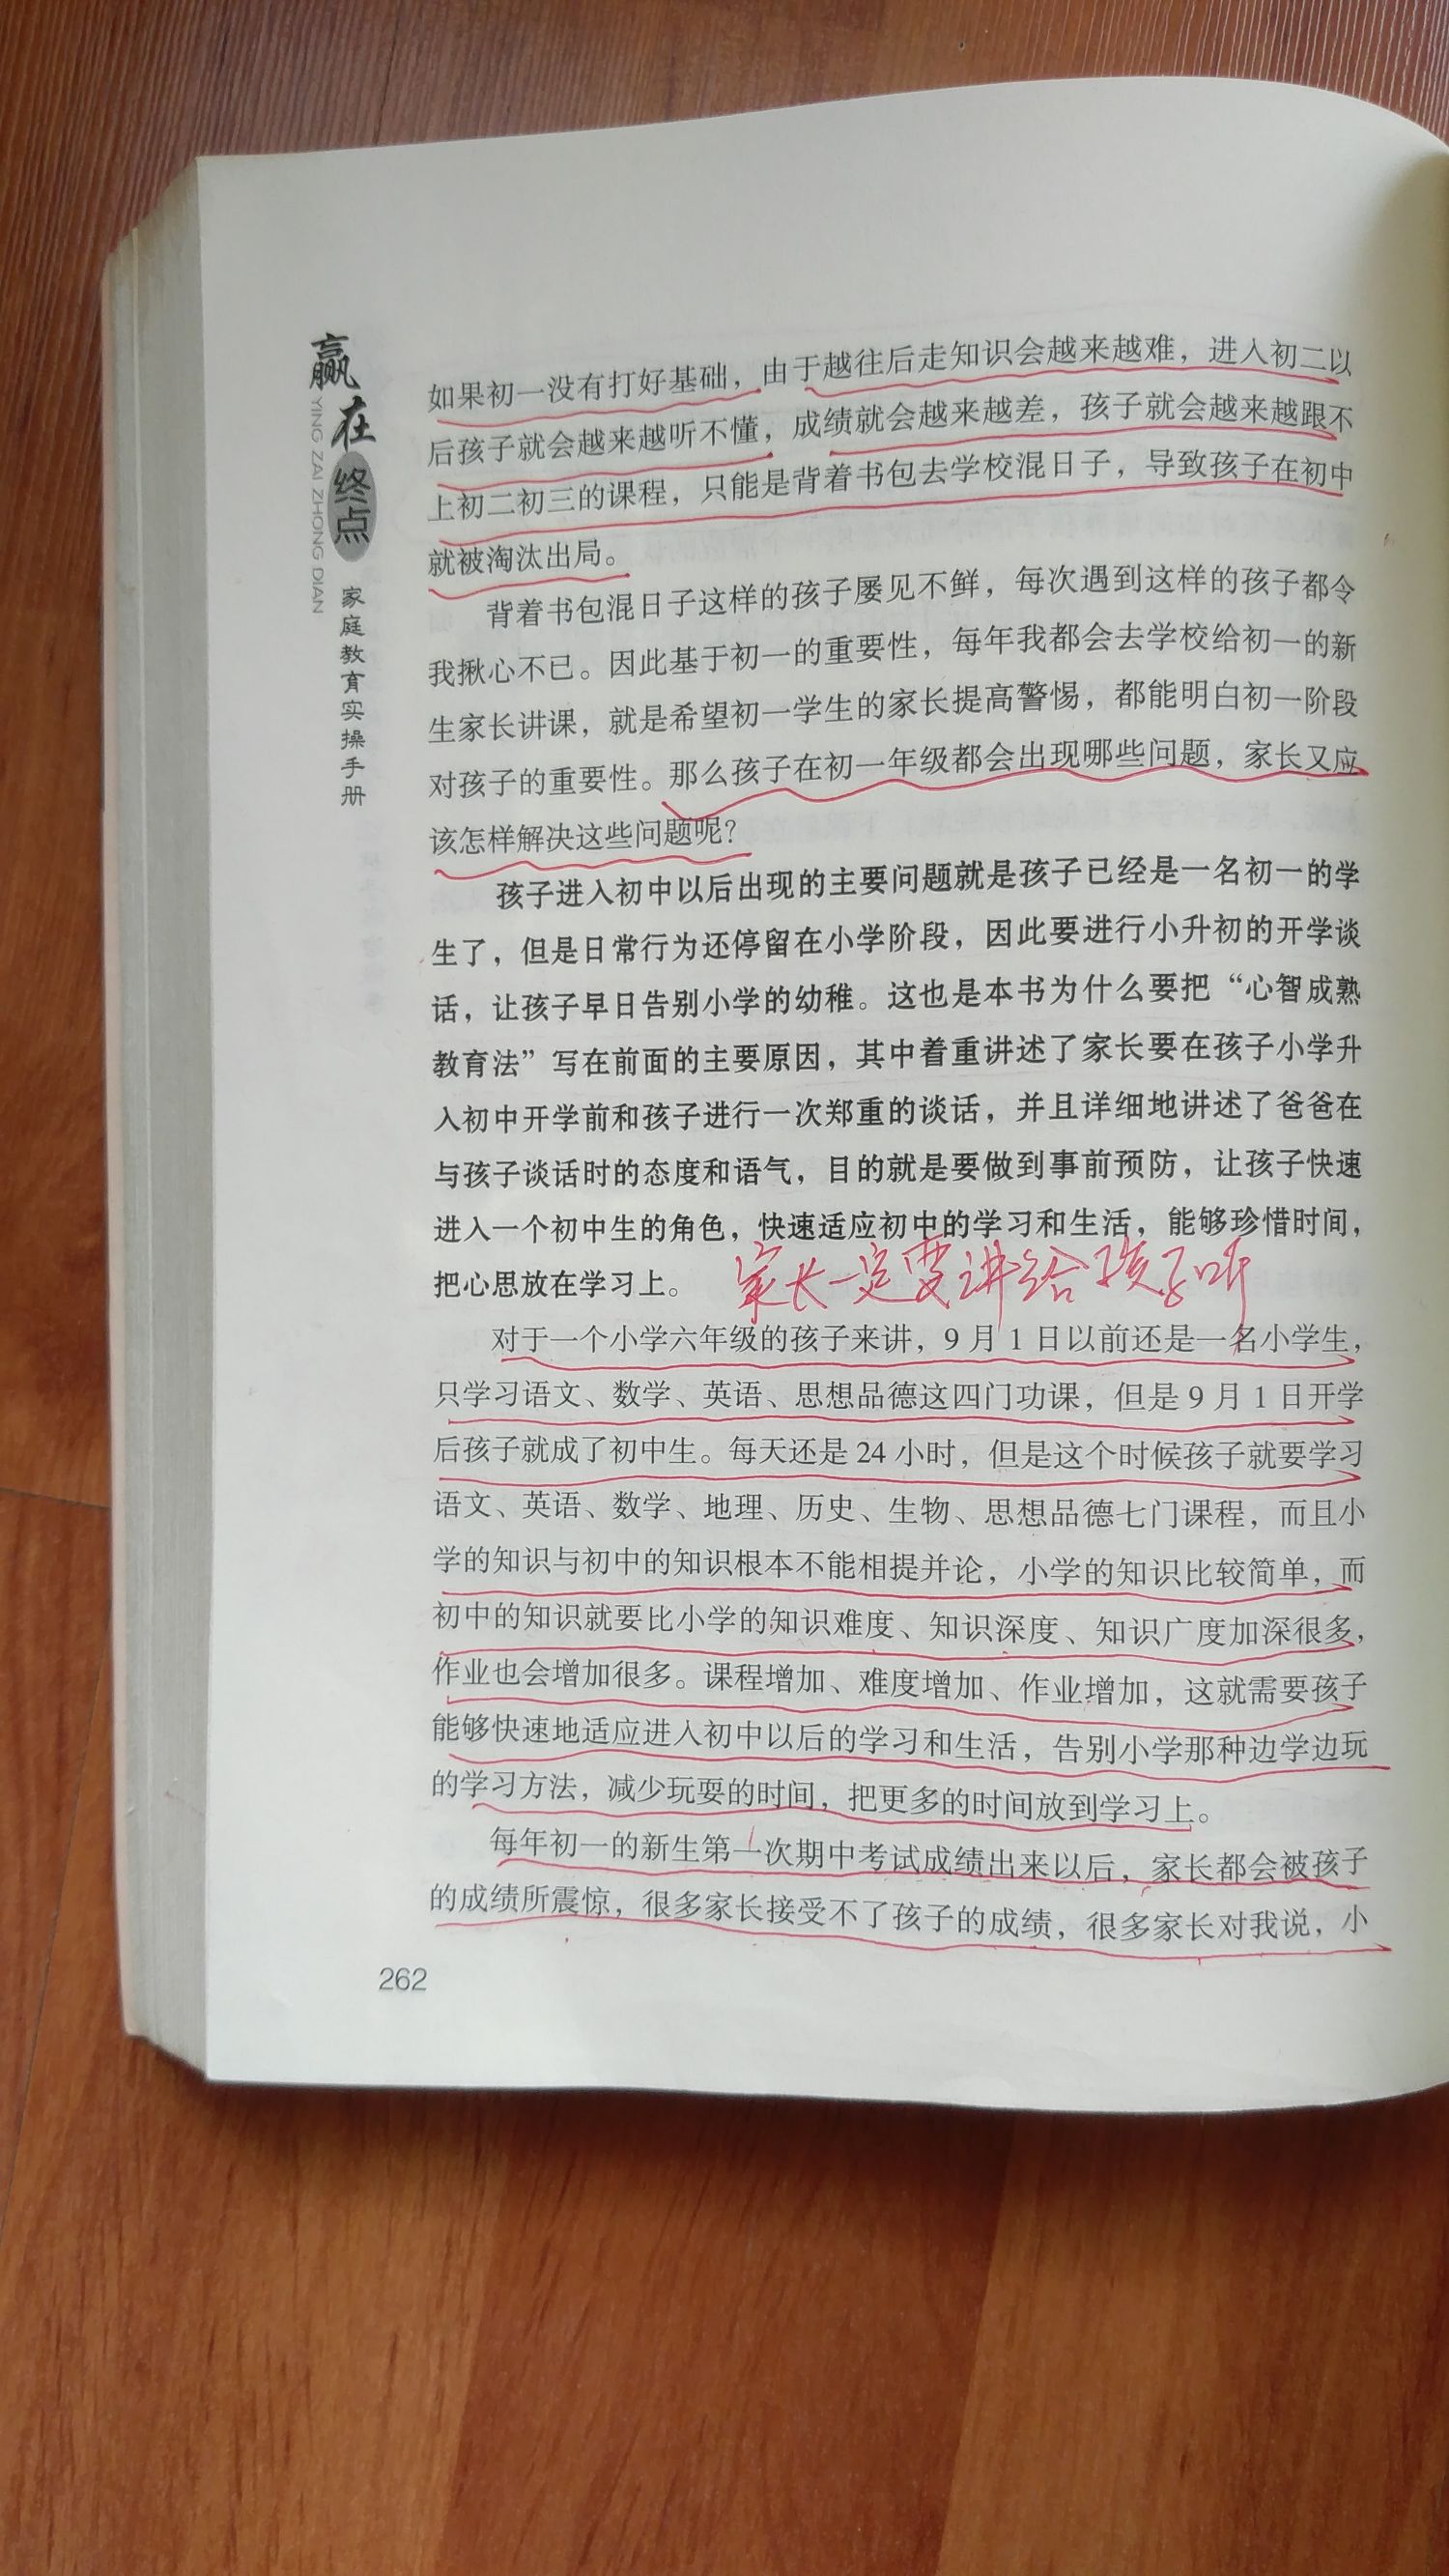 赢在终点
YING ZAI ZHONG DIAN
家庭教育实操手册
如果初一没有打好基础，由于越往后走知识会越来越难，进入初二以
后孩子就会越来越听不懂，成绩就会越来越差，孩子就会越来越跟不
上初二初三的课程，只能是背着书包去学校混日子，导致孩子在初中
就被淘汰出局。
背着书包混日子这样的孩子屡见不鲜，每次遇到这样的孩子都令
我揪心不已。因此基于初一的重要性，每年我都会去学校给初一的新
生家长讲课，就是希望初一学生的家长提高警惕，都能明白初一阶段
对孩子的重要性。那么孩子在初一年级都会出现哪些问题，家长又应
该怎样解决这些问题呢？
孩子进入初中以后出现的主要问题就是孩子已经是一名初一的学
生了，但是日常行为还停留在小学阶段，因此要进行小升初的开学谈
话，让孩子早日告别小学的幼稚。这也是本书为什么要把“心智成熟
教育法”写在前面的主要原因，其中着重讲述了家长要在孩子小学升
入初中开学前和孩子进行一次郑重的谈话，并且详细地讲述了爸爸在
与孩子谈话时的态度和语气，目的就是要做到事前预防，让孩子快速
进入一个初中生的角色，快速适应初中的学习和生活，能够珍惜时间，
把心思放在学习上。
家长一定要讲给孩子听
对于一个小学六年级的孩子来讲，9月1日以前还是一名小学生，
只学习语文、数学、英语、思想品德这四门功课，但是9月1日开学
后孩子就成了初中生。每天还是24小时，但是这个时候孩子就要学习
语文、英语、数学、地理、历史、生物、思想品德七门课程，而且小
学的知识与初中的知识根本不能相提并论，小学的知识比较简单，而
初中的知识就要比小学的知识难度、知识深度、知识广度加深很多，
作业也会增加很多。课程增加、难度增加、作业增加，这就需要孩子
能够快速地适应进入初中以后的学习和生活，告别小学那种边学边玩
的学习方法，减少玩耍的时间，把更多的时间放到学习上。
每年初一的新生第一次期中考试成绩出来以后，家长都会被孩子
的成绩所震惊，很多家长接受不了孩子的成绩，很多家长对我说，小
262